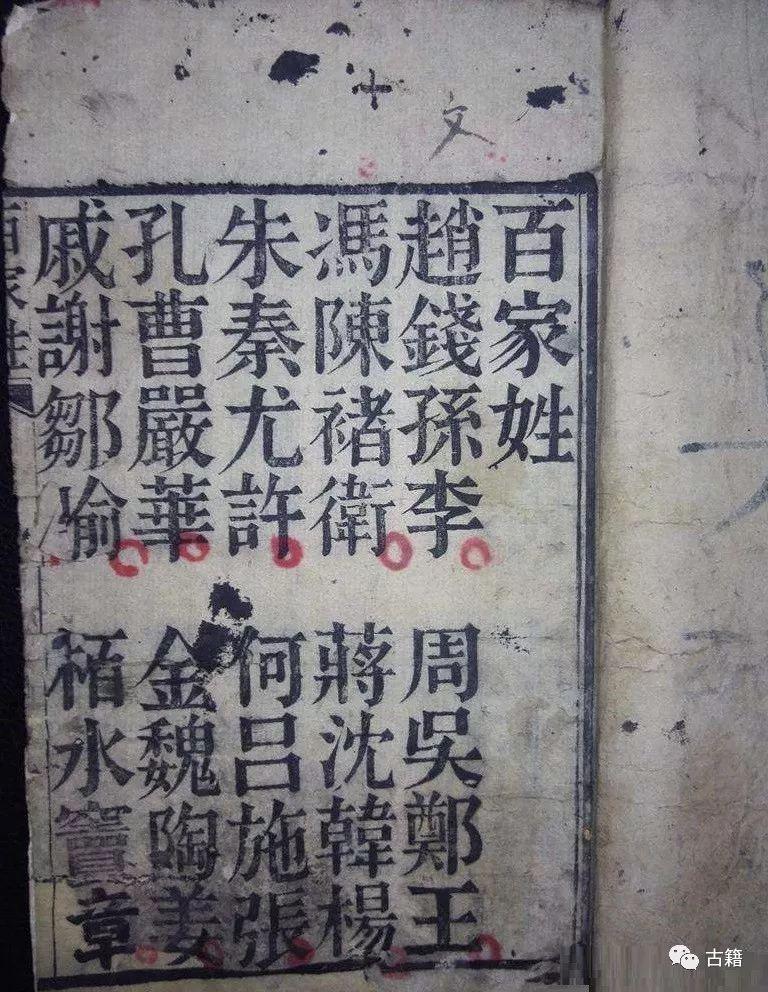 十
文
百家姓
趙錢孫李 周吳鄭王
馮陳褚衛 蔣沈韓楊
朱秦尤許 何呂施張
孔曹嚴華 金魏陶姜
戚謝鄒喻 栢水竇章
百家姓
古籍